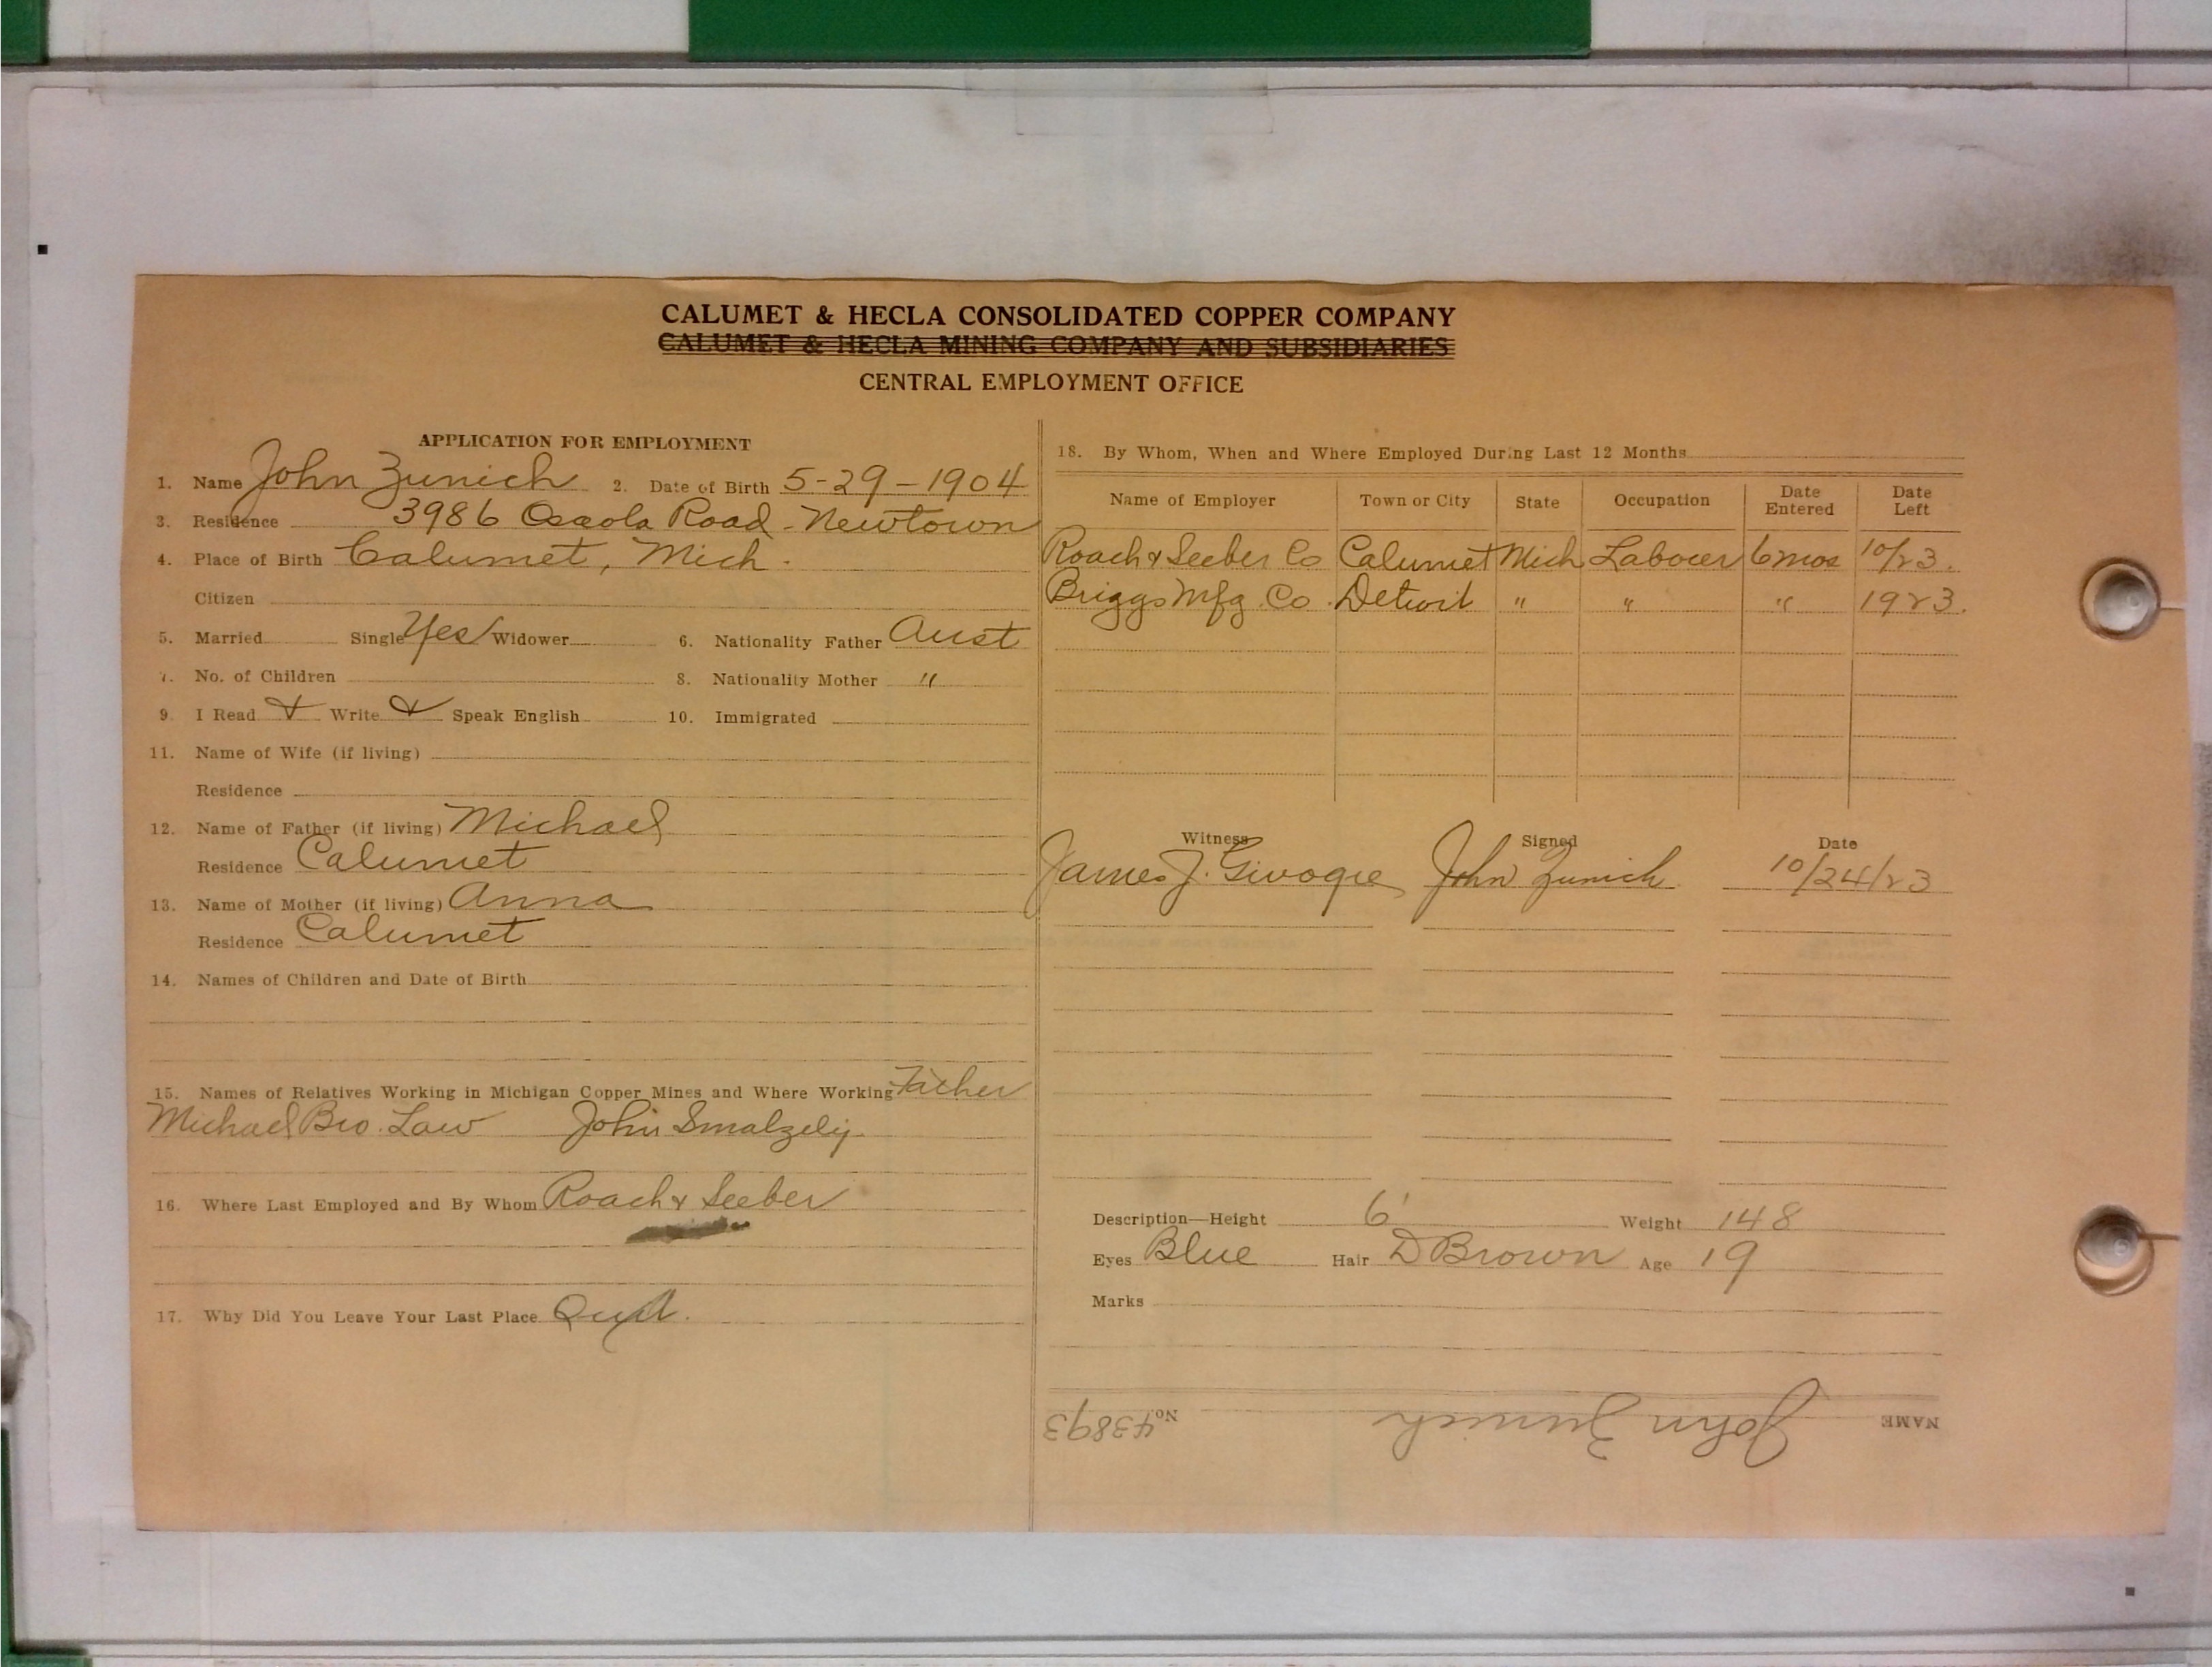 CALUMET & HECLA CONSOLIDATED COPPER COMPANY
CALUMET & HECLA MINING COMPANY AND SUBSIDIARIES
CENTRAL EMPLOYMENT OFFICE
APPLICATION FOR EMPLOYMENT
1. Name John Zunich 2. Date of Birth 5-29-1904
3. Residence 3986 Oseola Road - Newtown
4. Place of Birth Calumet, Mich.
Citizen
5. Married Single Yes Widower 6. Nationality Father Aust
7. No. of Children 8. Nationality Mother "
9. I Read & Write & Speak English 10. Immigrated
11. Name of Wife (if living)
Residence
12. Name of Father (if living) Michael
Residence Calumet
13. Name of Mother (if living) Anna
Residence Calumet
14. Names of Children and Date of Birth
15. Names of Relatives Working in Michigan Copper Mines and Where Working Father
Michael Bro. Law John Smalzely
16. Where Last Employed and By Whom Roach & Seeber
17. Why Did You Leave Your Last Place Quit.
18. By Whom, When and Where Employed During Last 12 Months
Name of Employer Town or City State Occupation Date Entered Date Left
Roach & Seeber Co Calumet Mich Laborer 6 mos 10/23.
Briggs Mfg. Co. Detroit " " " 1923.
Witness Signed Date
James J. John Zunich 10/24/23
Description—Height 6' Weight 148
Eyes Blue Hair D Brown Age 19
Marks
NAME John Zunich No. 43893